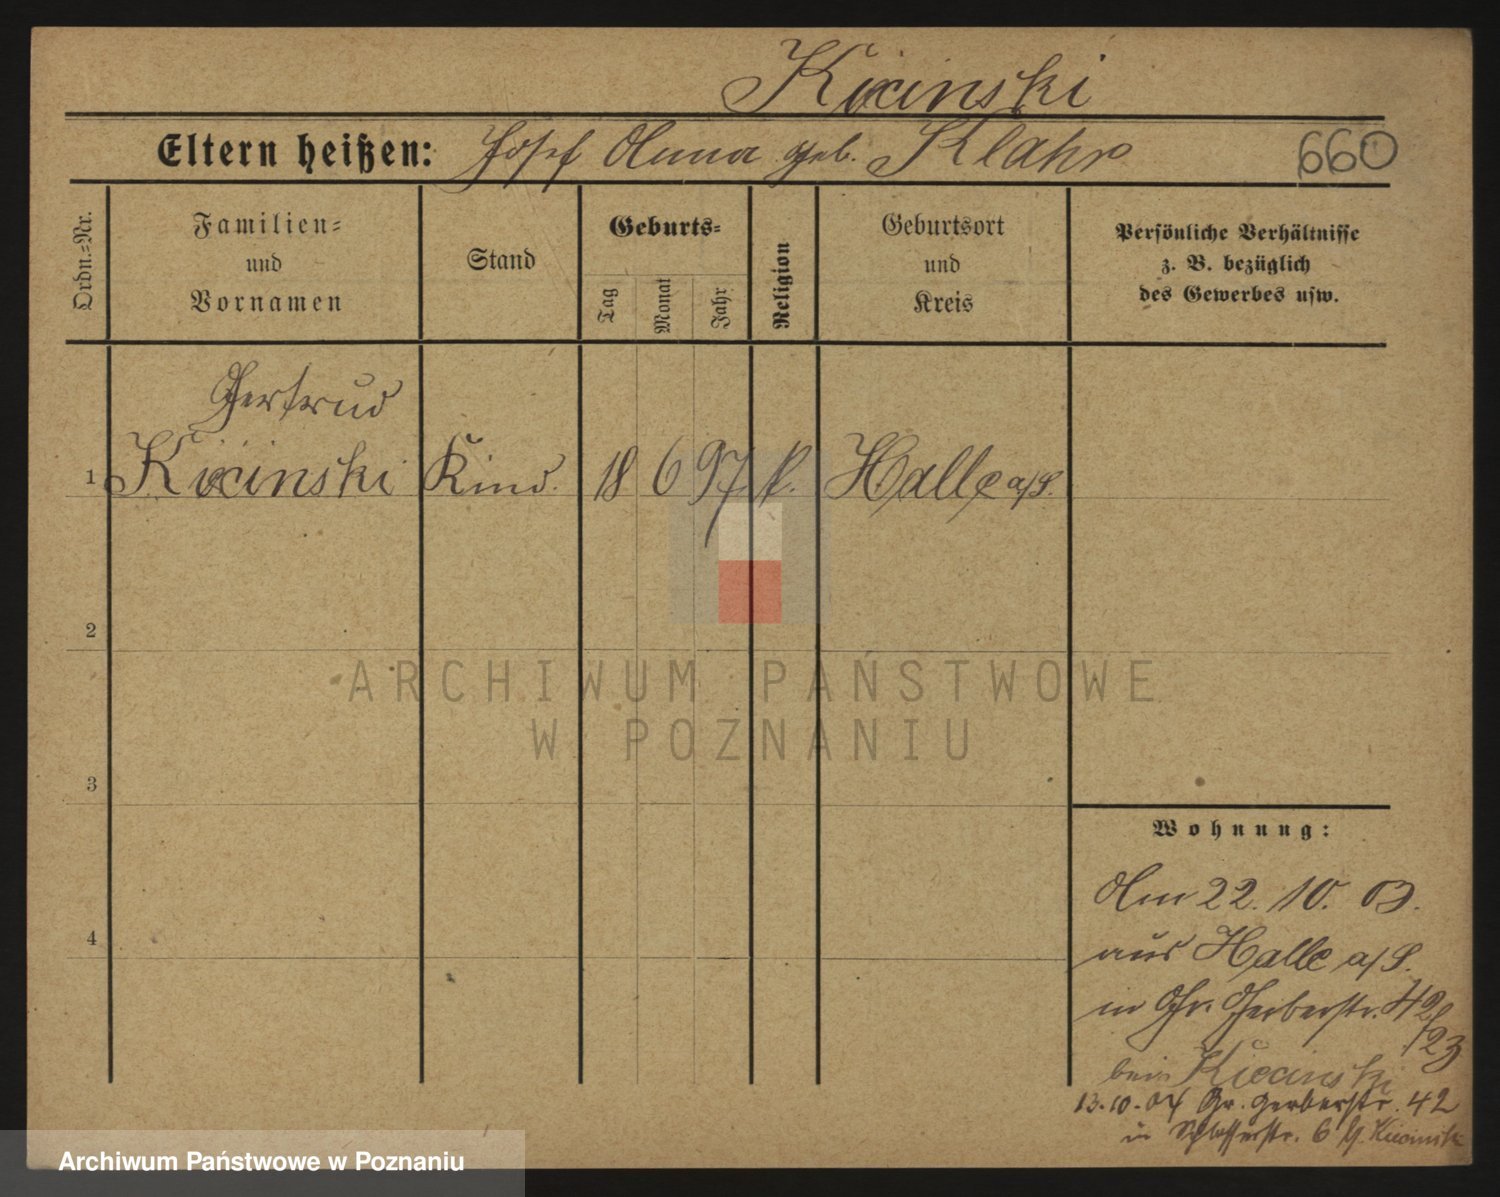 Kicinski
Eltern heißen: Josef Anna geb. Klahr
660
Ordn.-Nr.
Familien-
und
Vornamen
Stand
Geburts-
Tag
Monat
Jahr
Religion
Geburtsort
und
Kreis
Persönliche Verhältnisse
z. B. bezüglich
des Gewerbes usw.
Gertrud
1 Kicinski Kind. 18 6 97 k. Halle a/S.
2
3
4
Wohnung:
Am 22. 10. 03.
aus Halle a/S.
in Gr. Gerberstr. 42
/23
bei Kicinski
13.10.04 Gr. Gerberstr. 42
in Schlosserstr. 6 Kicinski
ARCHIWUM PAŃSTWOWE
W POZNANIU
Archiwum Państwowe w Poznaniu